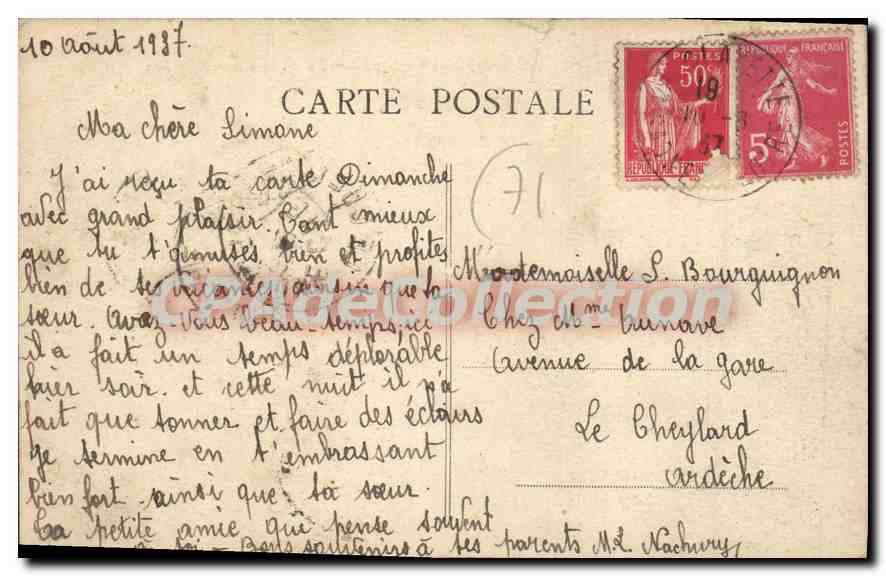 10 Août 1937.
CARTE POSTALE
Ma chère Simone
J'ai reçu ta carte Dimanche
avec grand plaisir. Tant mieux
que tu t'amuses bien et profites
bien de tes vacances ainsi que ta
sœur. Avez-vous beau temps, ici
il a fait un temps déplorable
hier soir et cette nuit il n'a
fait que tonner et faire des éclairs
Je termine en t'embrassant
bien fort ainsi que ta sœur.
Ta petite amie qui pense souvent
à toi - Bons souvenirs à tes parents M.L. Nachury
71
Mademoiselle S. Bourguignon
Chez Mme
Avenue de la gare
Le Cheylard
Ardèche
POSTES
50c
RÉPUBLIQUE FRANÇAISE
5c
POSTES
19
37
CPAdeCollection.com